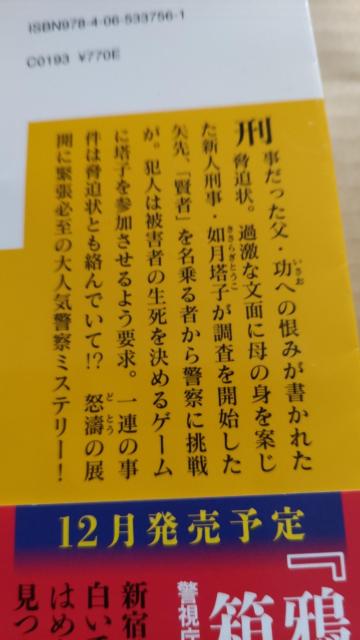 ISBN978-4-06-533756-1
C0193 ¥770E
刑事だった父・功への恨みが書かれた
いさお
脅迫状。過激な文面に母の身を案じ
た新人刑事・如月塔子が調査を開始した
きさらぎとうこ
矢先、「賢者」を名乗る者から警察に挑戦
が。犯人は被害者の生死を決めるゲーム
に塔子を参加させるよう要求。一連の事
件は脅迫状とも絡んでいて!? 怒濤の展
どとう
開に緊張必至の大人気警察ミステリー!
12月発売予定
『鴉
箱
警視庁
新宿
白いで
はめ
見つ